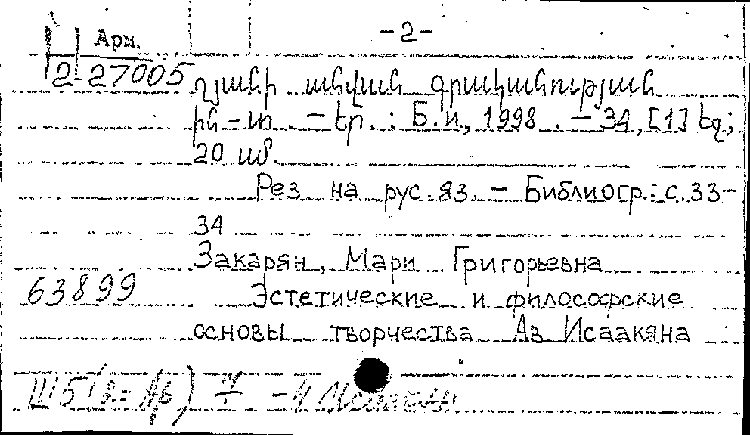 -2-
Арм.
2-27005
ղյանի անվան գրականության
ին-տ. – Եր. : Б.и, 1998. – 34, [1] էջ;
20 սմ
Рез на рус.яз. – Библиогр.: с.33-
34
Закарян, Мари Григорьевна
63899 Эстетические и философские
основы творчества Ав Исаакяна